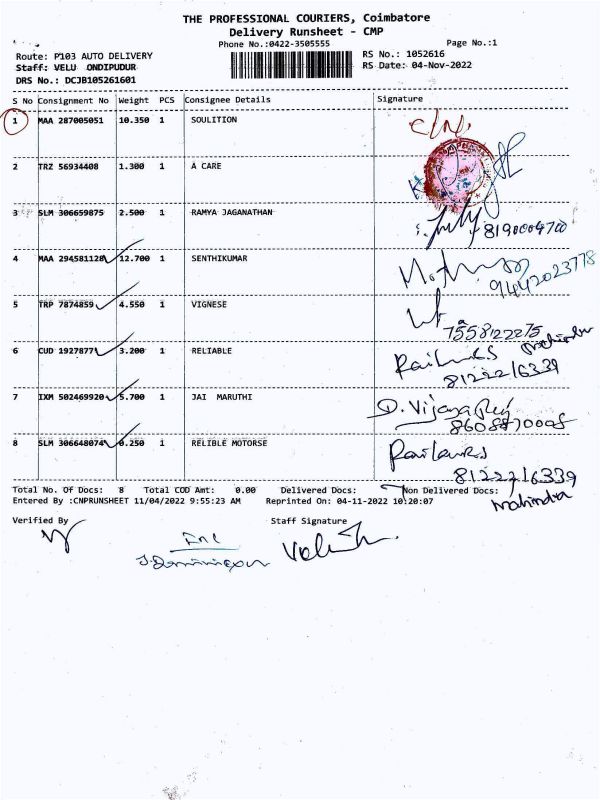 THE PROFESSIONAL COURIERS, Coimbatore
Delivery Runsheet - CMP
Phone No.:0422-3505555 Page No.:1
Route: P103 AUTO DELIVERY RS No.: 1052616
Staff: VELU ONDIPUDUR RS Date: 04-Nov-2022
DRS No.: DCJB105261601
S No Consignment No Weight PCS Consignee Details Signature
1 MAA 287005051 10.350 1 SOULITION
2 TRZ 56934408 1.300 1 A CARE
3 SLM 306659875 2.500 1 RAMYA JAGANATHAN
8190004700
4 MAA 294581128 12.700 1 SENTHIKUMAR
9442023778
5 TRP 7874859 4.550 1 VIGNESE
7558122275
6 CUD 1927877 3.200 1 RELIABLE
8122216339
7 IXM 502469920 5.700 1 JAI MARUTHI
D. Vijaya
8 SLM 306648074 0.250 1 RELIBLE MOTORSE
8122216339
Total No. Of Docs: 8 Total COD Amt: 0.00 Delivered Docs: 7 Non Delivered Docs:
mahindra
Entered By :CNPRUNSHEET 11/04/2022 9:55:23 AM Reprinted On: 04-11-2022 10:20:07
Verified By Staff Signature